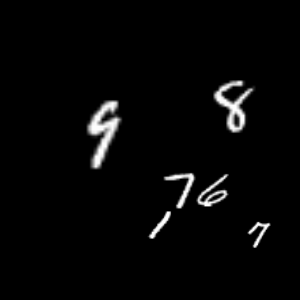 9 8
7 6
1 7